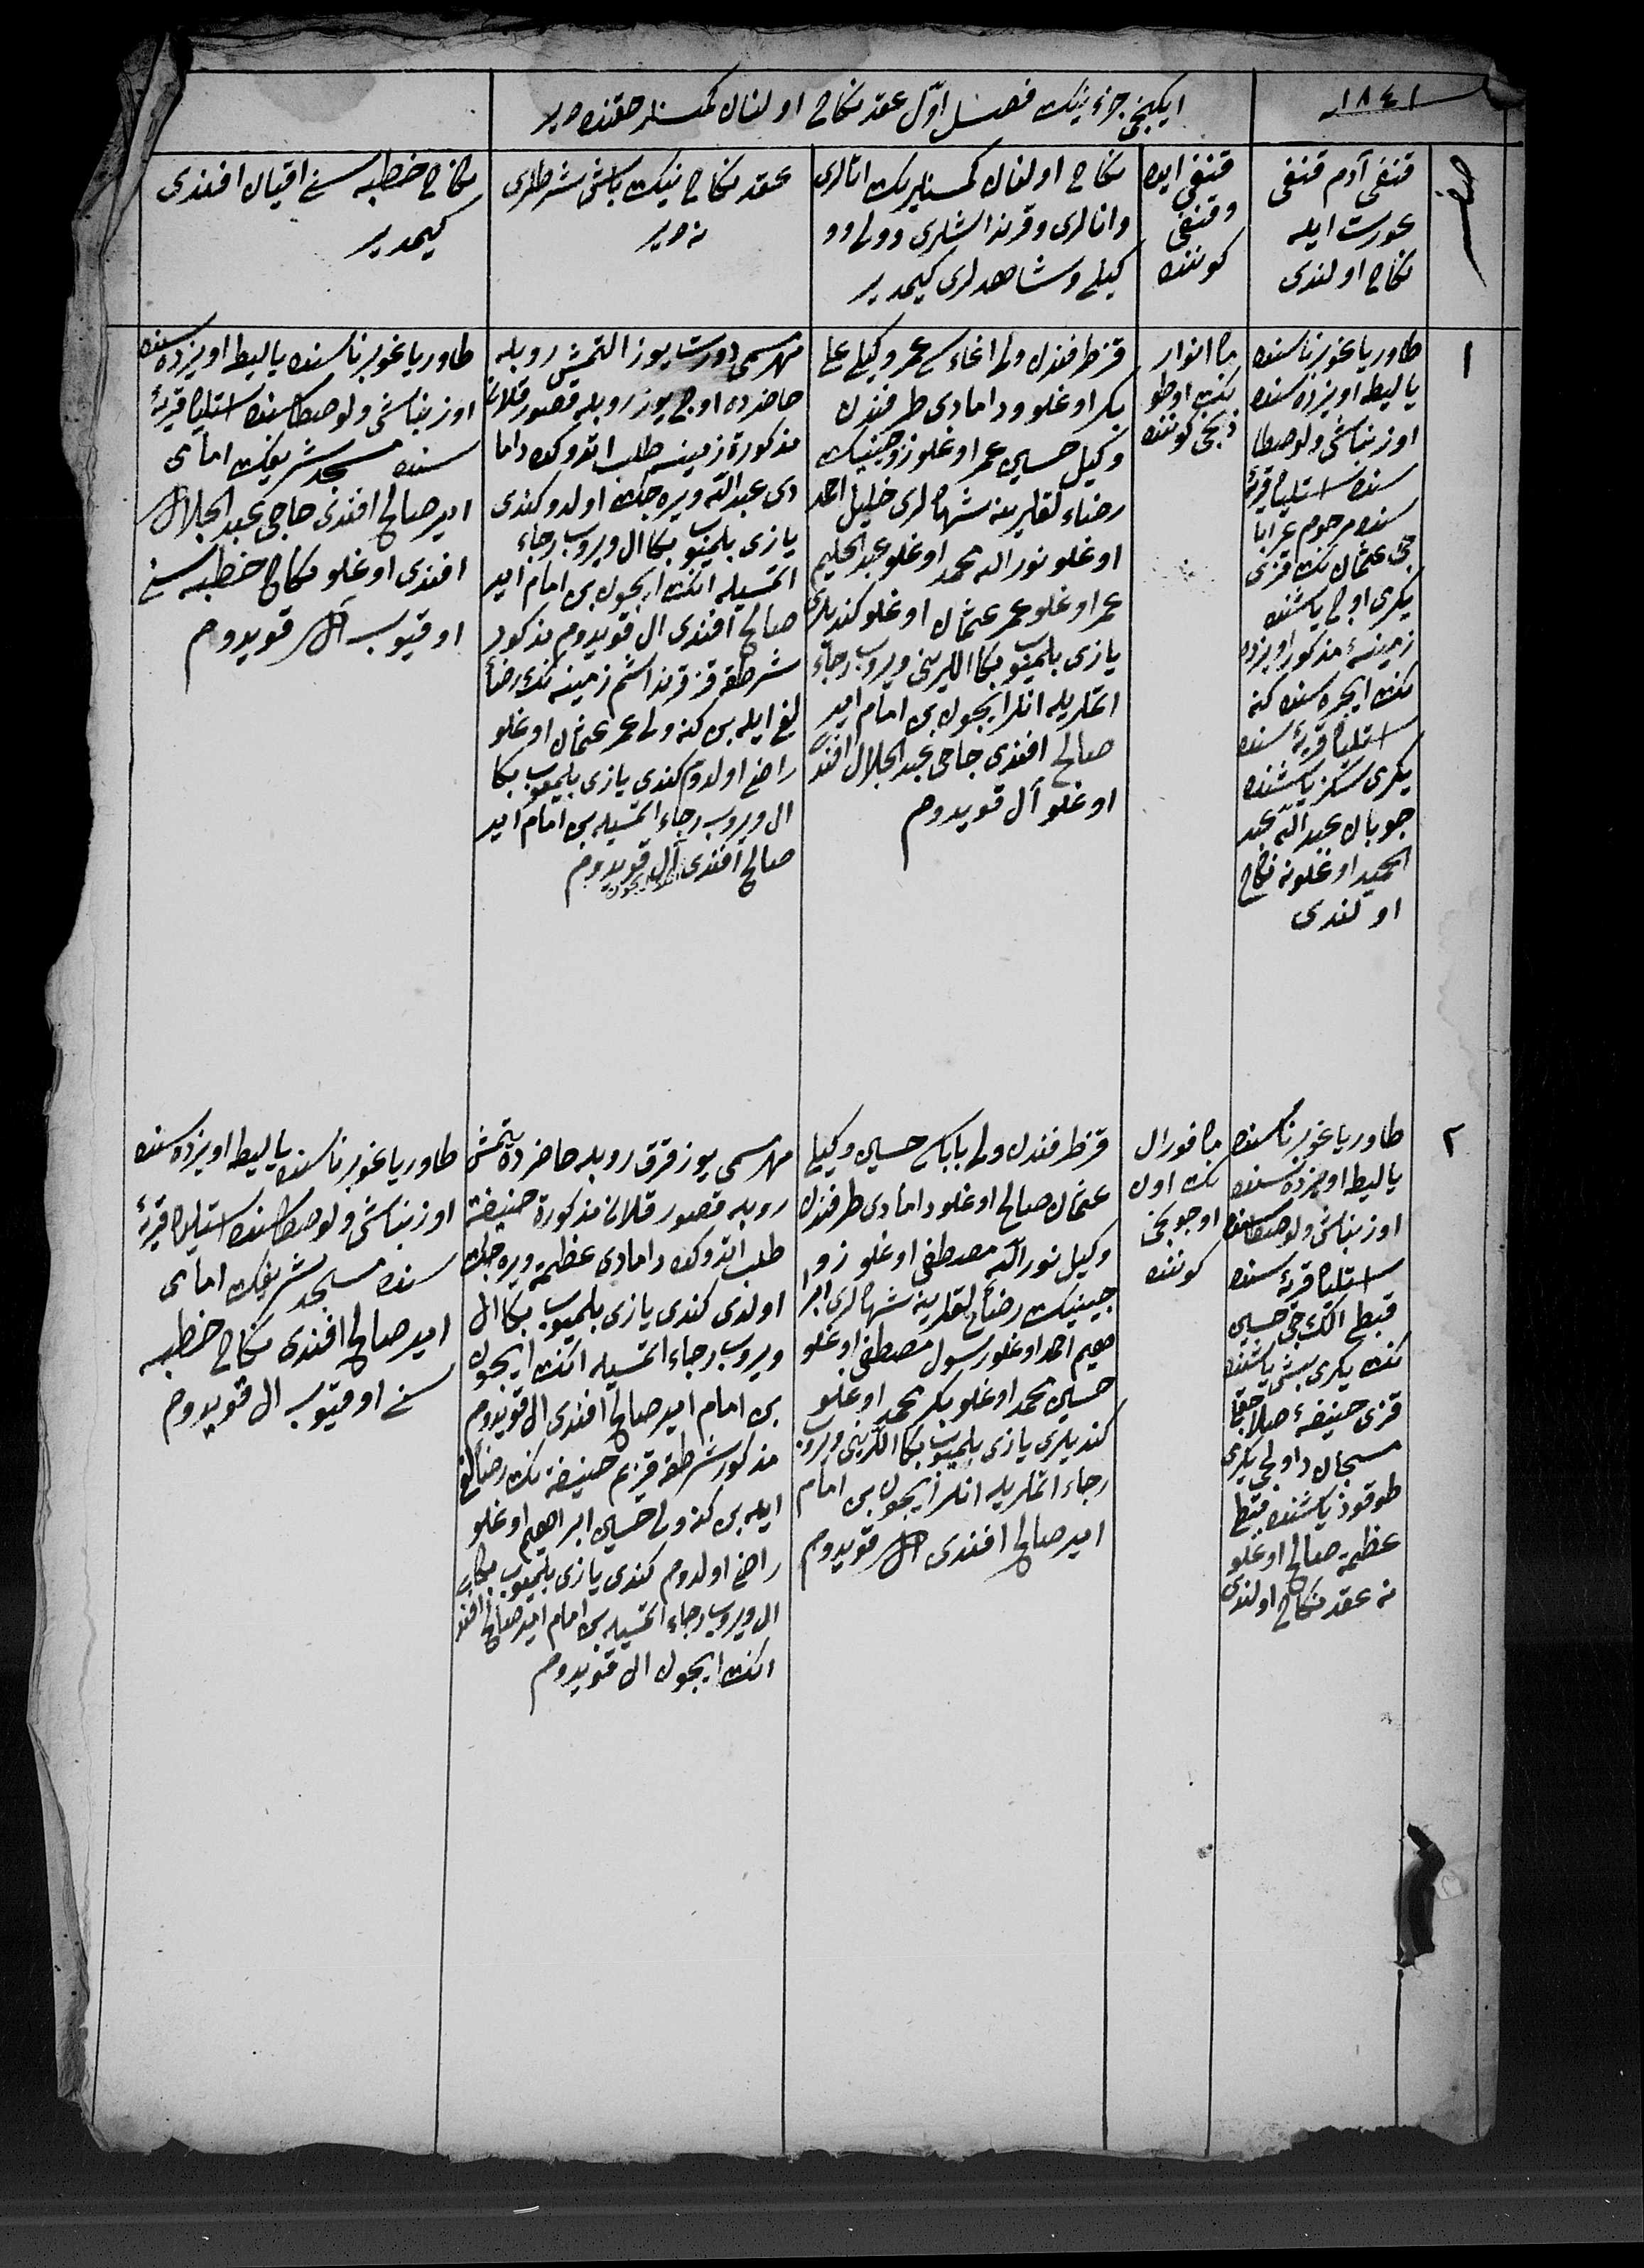 ١٨٤١
ایکنجی جزءنیك فصل اوّل عقد نکاح اولنان کمسنلر حقنده در
قنغی آدم قنغی
عورت ایله
نکاح اولندی
قنغی ایده
وقنغی
کوننده
نکاح اولنان کمسنلرنك اتالری
وانالری وقرنداشلری وولی وو
کیلی وشاهدلری کیمدیر
عقد نکاح نیك باشی شرطلری
نه در
نکاح خطبه سنی اقیان افندی
کیمدیر
١
طاوریا غوبرناسنده
یالیطه اویزده سنده
اوزنباشی ولوصطا
سنده استلیه قریۀ
سنده مرحوم عرابا
جی عثمان نك قزی
یکرمی اوچ یاشنده
زمینۀ مذکور اویزده
نك ایچره سنده کنه
استلیه قریۀ سنده
یکرمی سکز یاشنده
چوبان عبدالله عبد
الحمید اوغلونه نکاح
اولندی
ماه انوار
نك اوطو
زنجی کوننده
قز طرفندن ولی اغاسی عمر وکیلی علی
بکر اوغلو ودامادی طرفندن
وکیل حسین عمر اوغلو زوجینیك
رضاء لقلرینه شهادلری خلیل احمد
اوغلو نورالله محمد اوغلو عبدالحلیم
عمر اوغلو عمر عثمان اوغلو کندیلری
یازی بلمیوب بکا اللرینی ویروب رجاء
اتملریله انلر ایچون بن امام امیر
صالح افندی حاجی عبدالجلال افندی
اوغلو آل قویدوم
مهر مسمی دورت یوز التمش روبله
حاضرده اوچ یوز روبله قصور قلانی
مذکورة زمینه طلب اتدوکده داما
دی عبدالله ویره جك اولدو کندی
یازی بلمیوب بکا ال ویروب رجاء
اتمسیله انك ایچون بن امام امیر
صالح افندی ال قویدوم مذکور
شرطقه قز قرنداشم زمینه نك رضا
لغ ایله بن کنه ولی عمر عثمان اوغلو
راضی اولدوم کندی یازی بلمیوب بکا
ال ویروب رجاء اتمسیله بن امام امیر
صالح افندی انك ایچون آل قویدوم
طاوریا غوبرناسنده یالیطه اویزده سنده
اوزنباشی ولوصطاسنده استلیه قریۀ
سنده مسجد شریفنك امامی
امیر صالح افندی حاجی عبدالجلال
افندی اوغلو نکاح خطبه سنی
اوقیوب آل قویدوم
٢
طاوریا غوبرناسنده
یالیطه اویزده سنده
اوزنباشی ولوصطاسنده
استلیه قریۀ سنده
قبطی الکجی حسین
نك یکرمی بشی یاشنده
قزی حنیفۀ
یکرمی
طوقوز یاشنده قبطی
عظیمه صالح اوغلو
نه عقد نکاح اولندی
ماه فورال
نك اون
اوچونجی
کوننده
قز طرفندن ولی باباسی حسین وکیلی
عثمان صالح اوغلو دامادی طرفندن
وکیل نورالله مصطفی اوغلو زو
جینیك رضالقلرینه شهادلری ابرا
هیم احمد اوغلو رسول مصطفی اوغلو
حسین محمد اوغلو بکر محمد اوغلو
کندیلری یازی بلمیوب بکا اللرینی ویروب
رجاء اتملریله انلر ایچون بن امام
امیر صالح افندی ال قویدوم
مهر مسمی یوز قرق روبله حاضرده یتمش
روبله قصور قلانی مذکورة حنیفه
طلب اتدوکده دامادی عظیمه ویره جك
اولدی کندی یازی بلمیوب بکا ال
ویروب رجاء اتمسیله انك ایچون
بن امام امیر صالح افندی ال قویدوم
مذکور شرطقه قزم حنیفه نك رضالغ
ایله بن کنه ولی حسین ابراهیم اوغلو
راضی اولدوم کندی یازی بلمیوب بکا
ال ویروب رجاء اتمسیله بن امام امیر صالح افند
انك ایچون ال قویدوم
طاوریا غوبرناسنده یالیطه اویزده سنده
اوزنباشی ولوصطاسنده استلیه قریۀ
سنده مسجد شریفنك امامی
امیر صالح افندی نکاح خطبه
سنی اوقیوب ال قویدوم